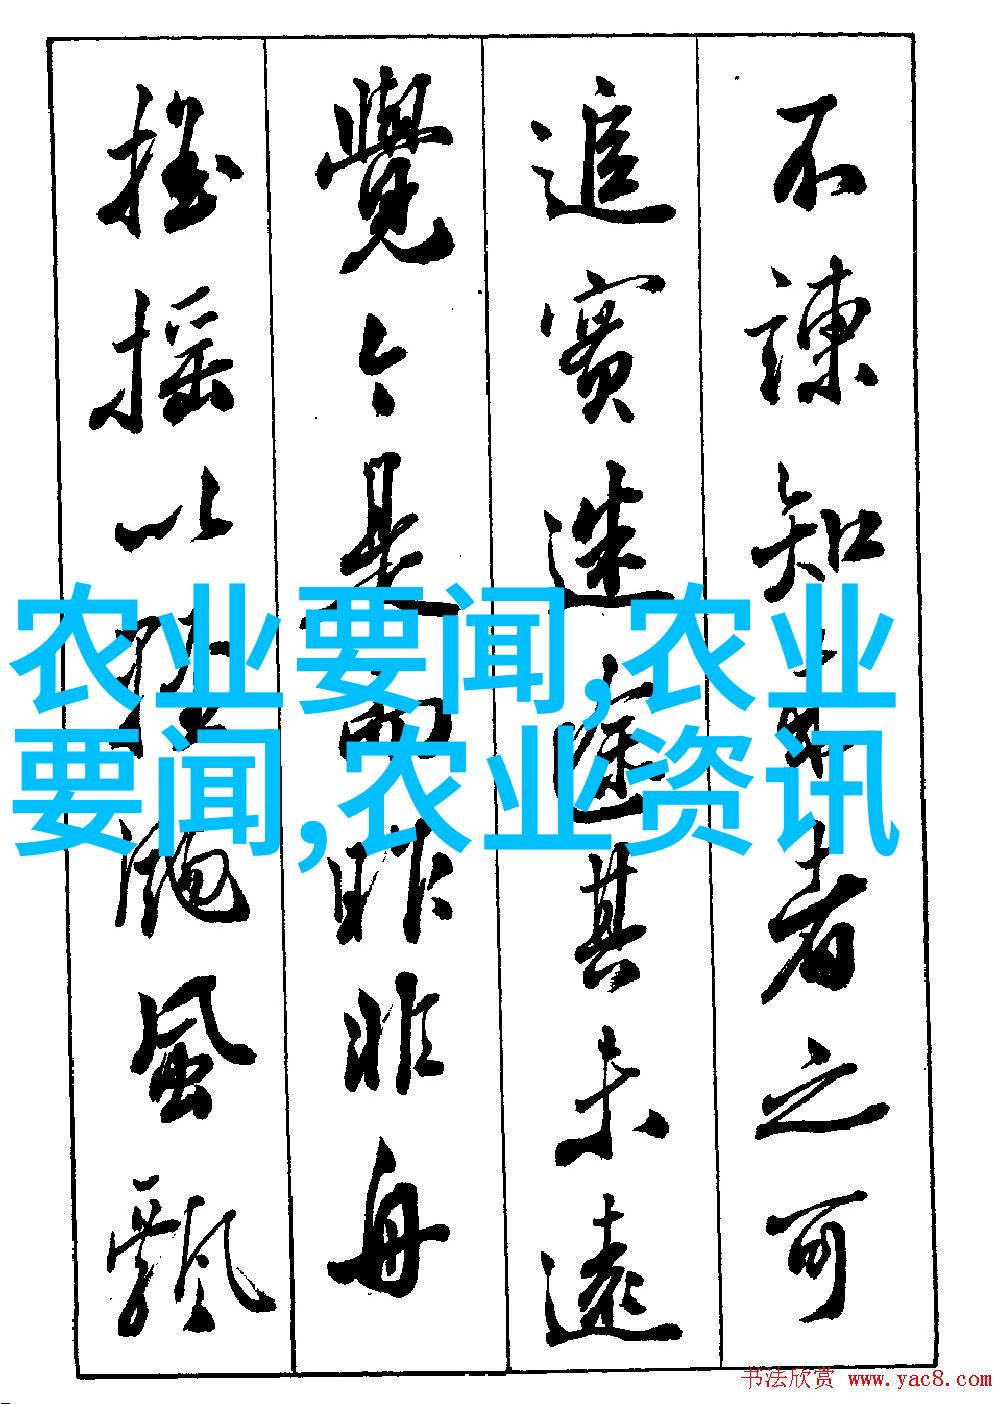 不諫知来者之可
追實迷途其未遠
覺今是而昨非舟
摇摇以輕颺風飄
农业要闻,农业
要闻,农业资讯
书法欣赏 www.yac8.com